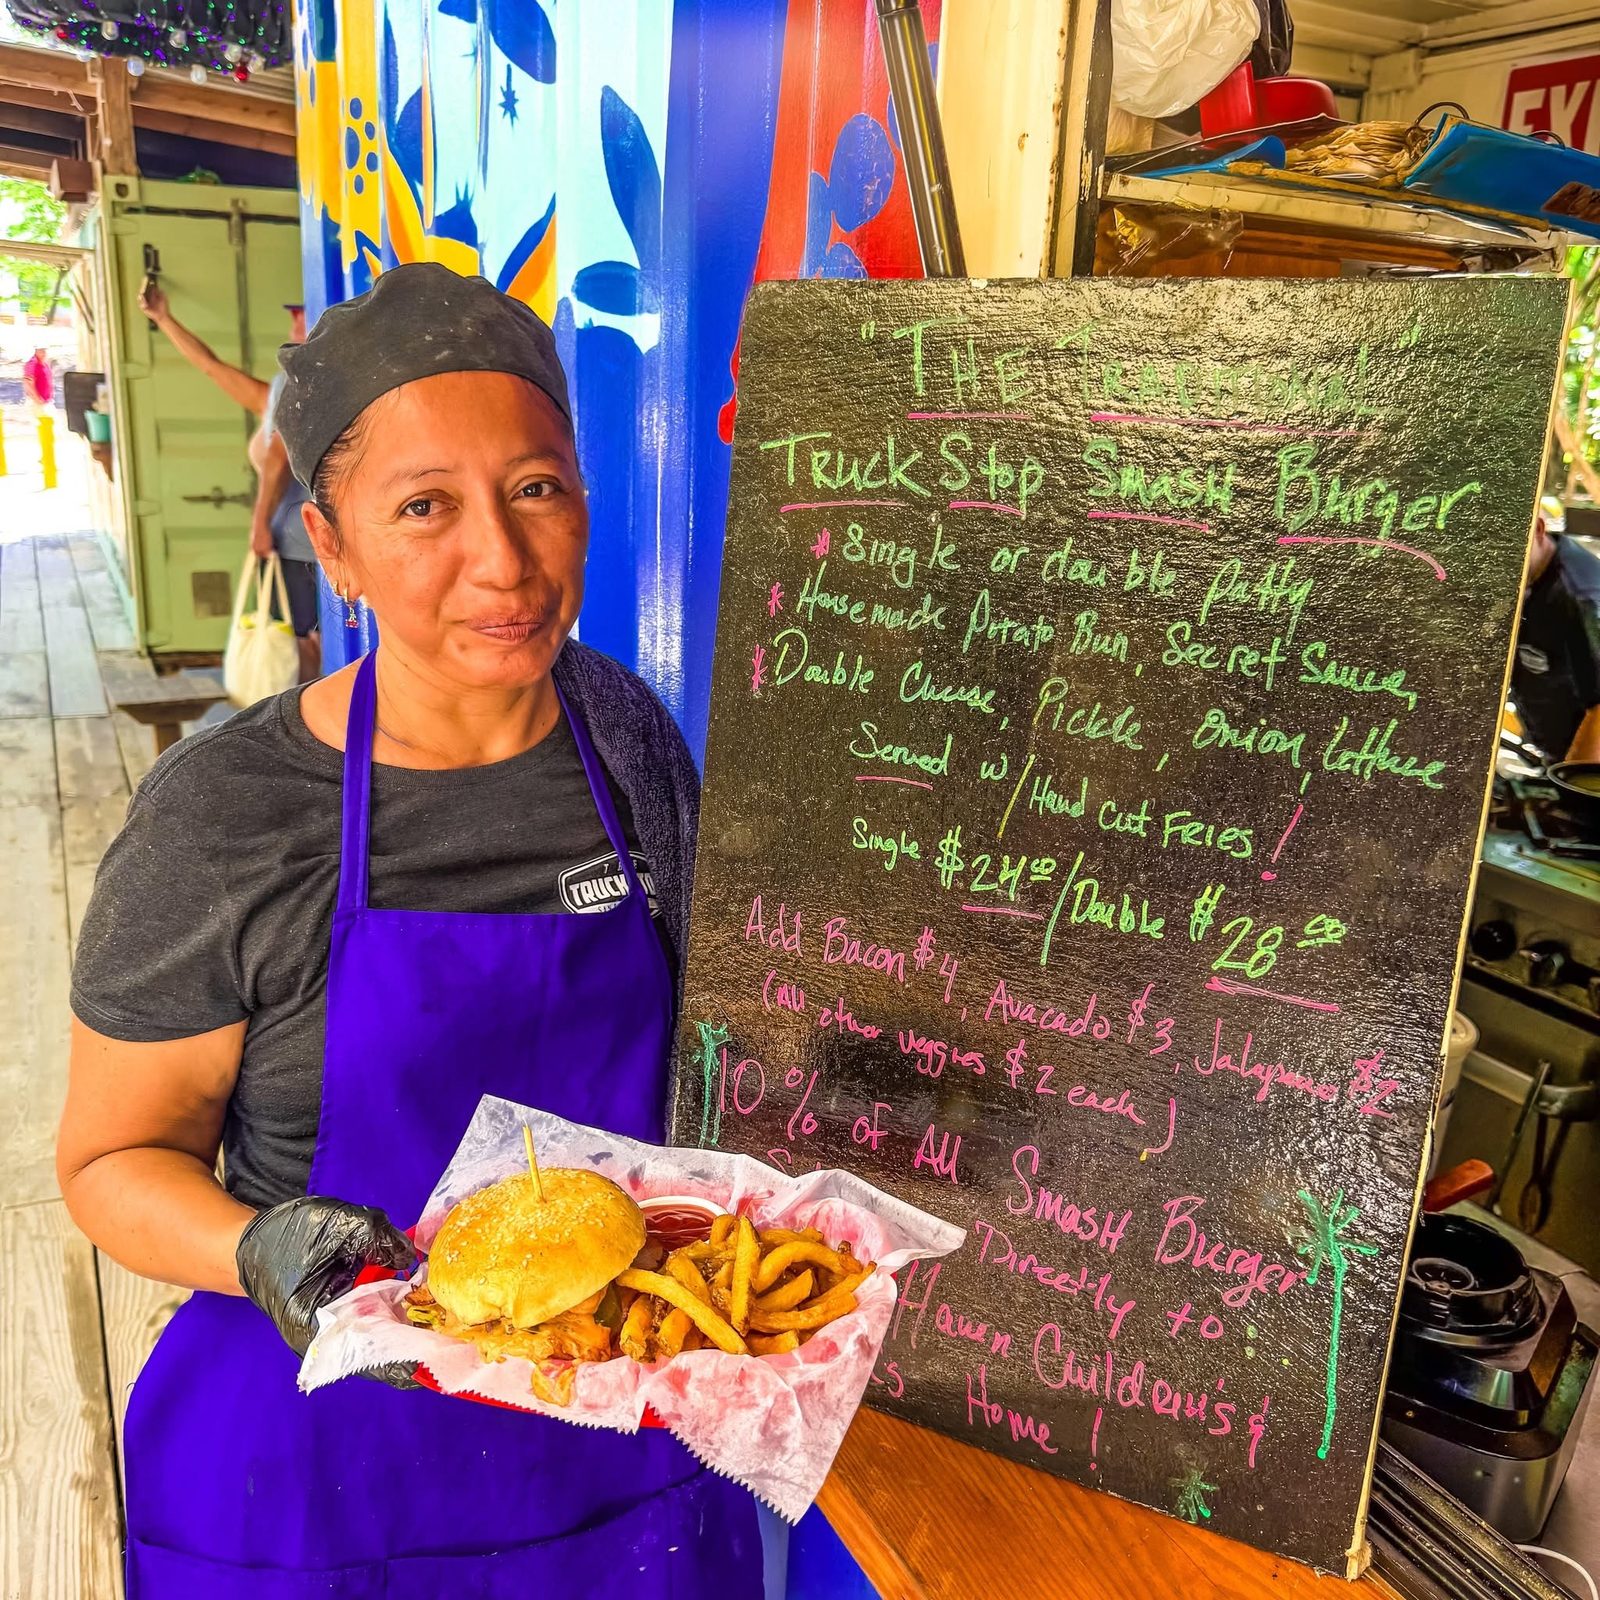 "THE TRADITIONAL"
TRUCK STOP SMASH BURGER
* Single or double patty
* Housemade Potato Bun, Secret Sauce,
* Double Cheese, Pickle, Onion, Lettuce
Served w/ Hand Cut FRIES!
Single $24.00 / Double $28.00
Add Bacon $4, Avacado $3, Jalapeno $2
(All other veggies $2 each)
10% of All SMASH BURGER
Directly to
Haven Children's &
Home!
TRUCK
EX